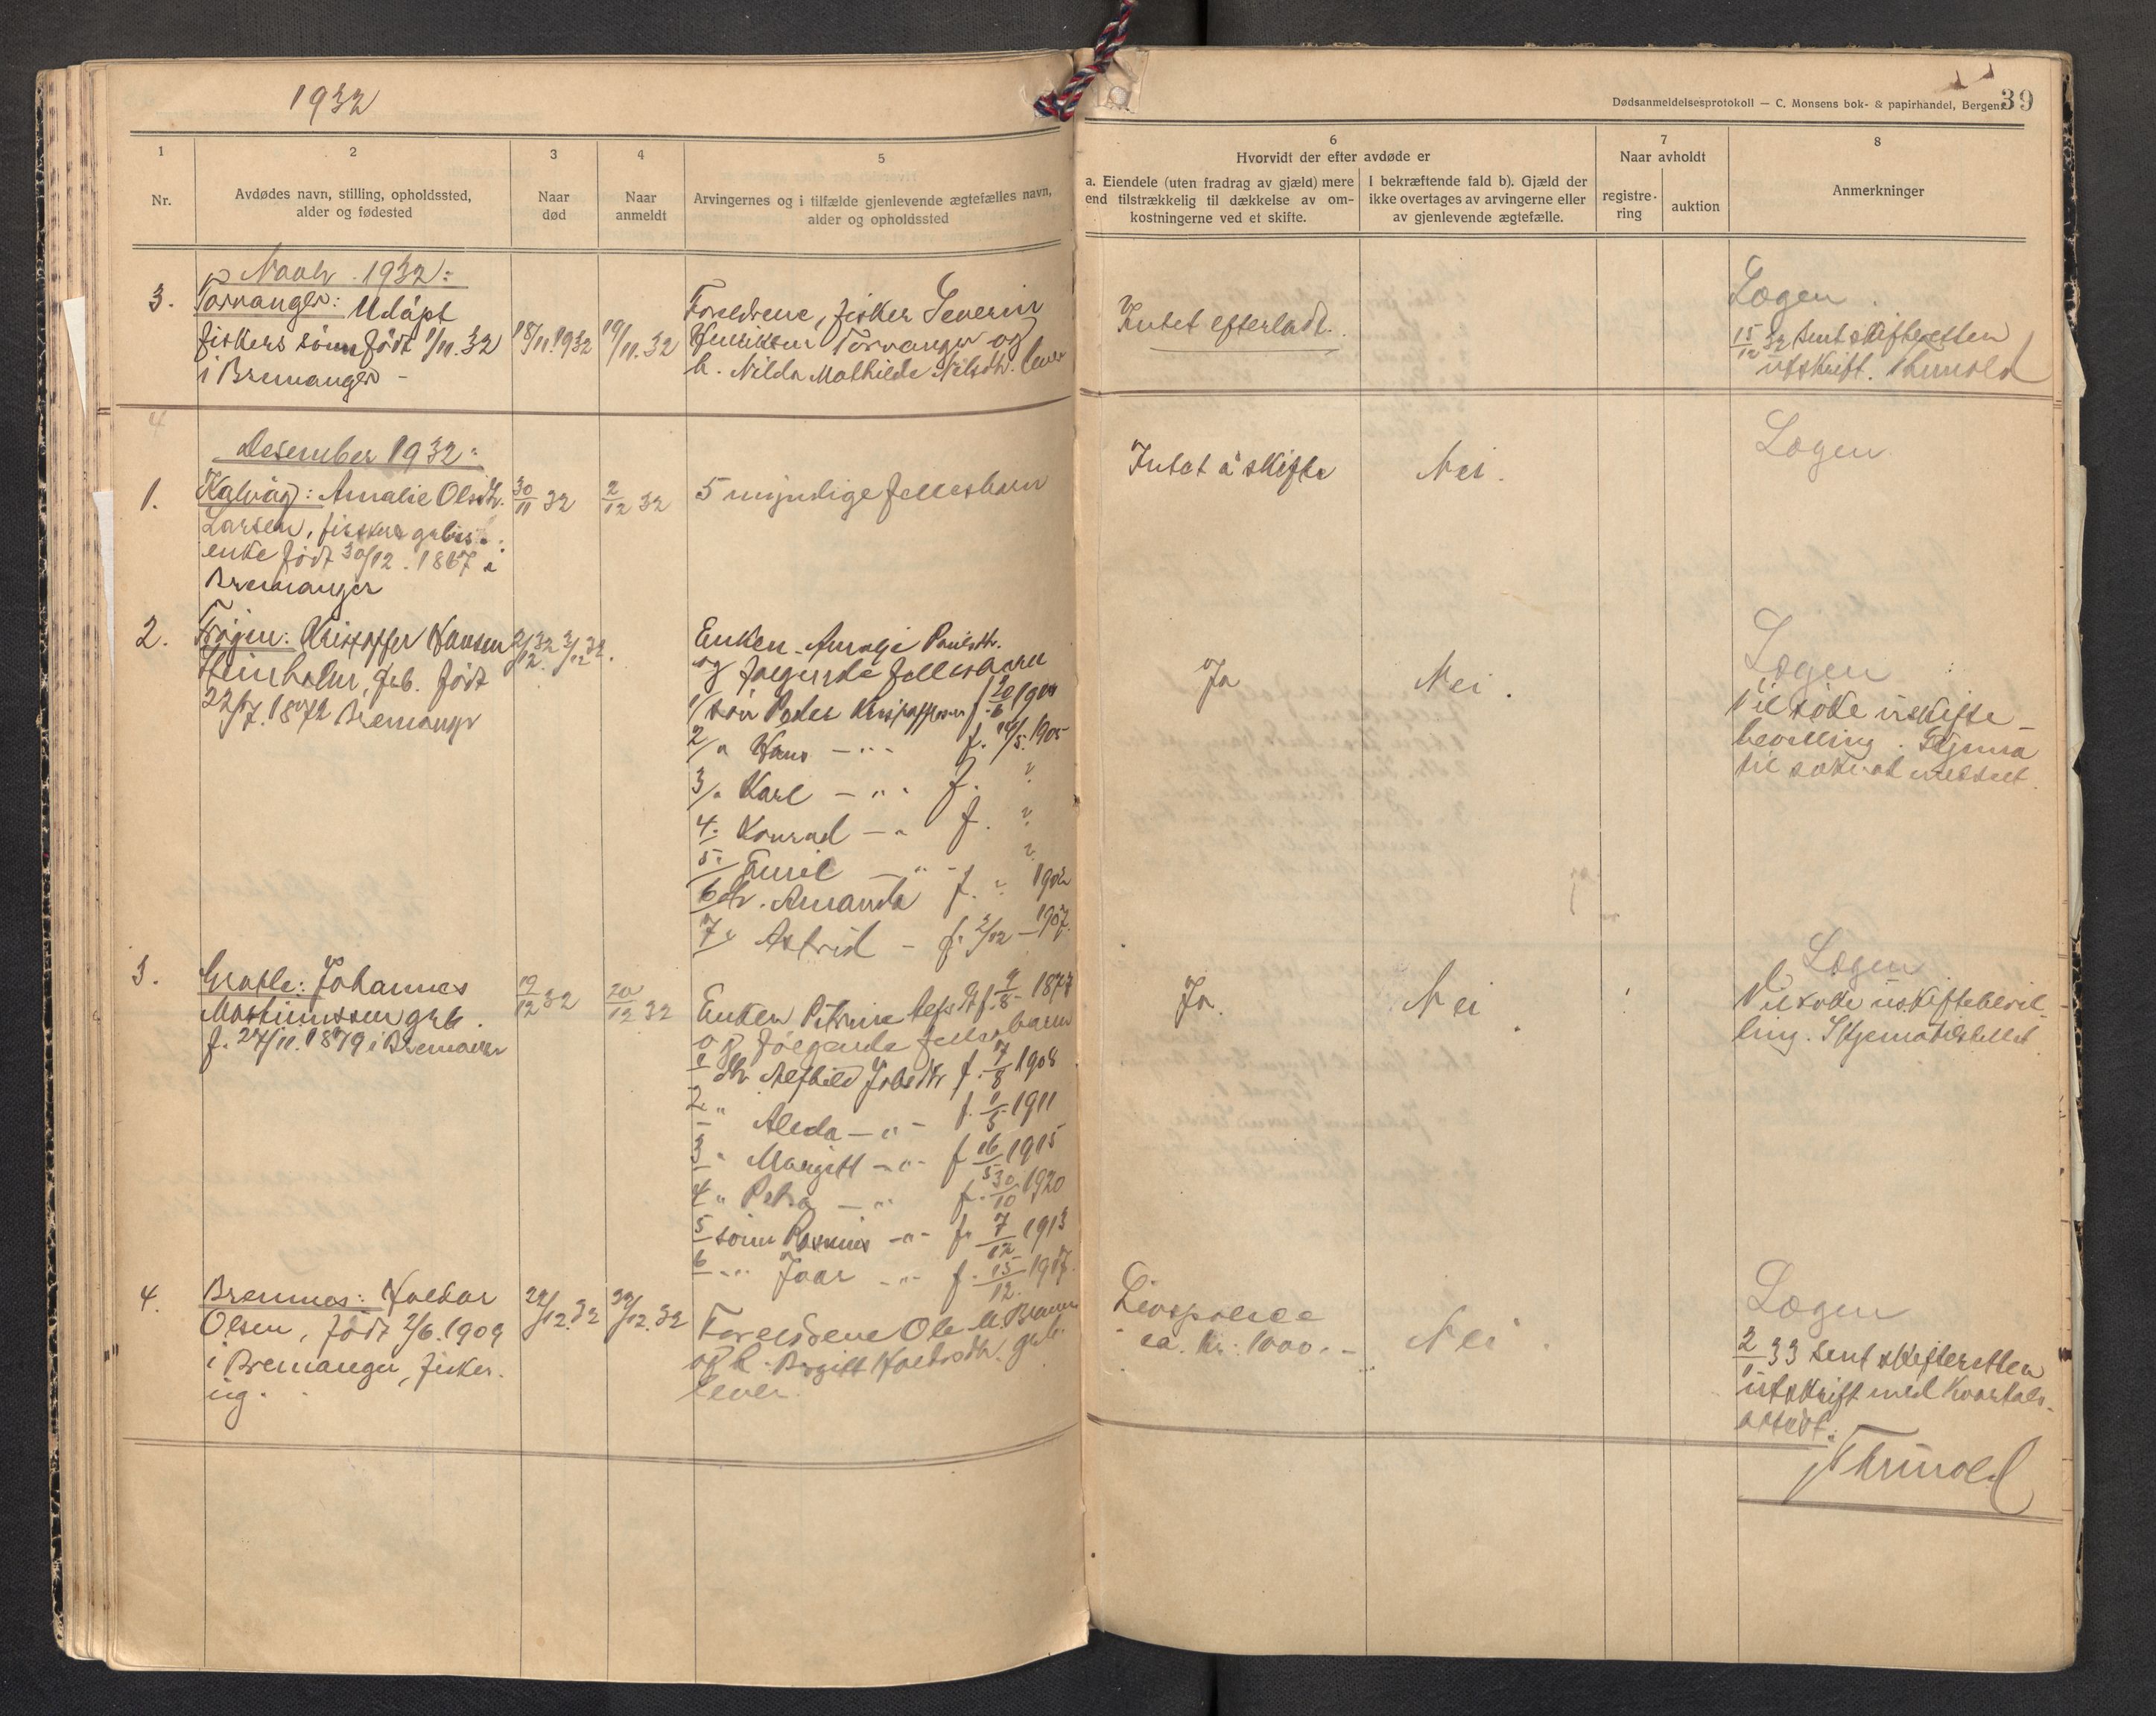 1932
Dødsanmeldelsesprotokoll — C. Monsens bok- & papirhandel, Bergen.
39
1
2
3
4
5
6
7
8
Nr.
Avdødes navn, stilling, opholdssted,
alder og fødested
Naar
død
Naar
anmeldt
Arvingernes og i tilfælde gjenlevende ægtefælles navn,
alder og opholdssted
Hvorvidt der efter avdøde er
a. Eiendele (uten fradrag av gjæld) mere
end tilstrækkelig til dækkelse av om-
kostningerne ved et skifte.
I bekræftende fald b). Gjæld der
ikke overtages av arvingerne eller
av gjenlevende ægtefælle.
Naar avholdt
registre-
ring
auktion
Anmerkninger
1932:
3.
Torvanger: Udøpt
fiskers sønn født 1/11.32
i Bremanger
18/11.1932
19/11.32
Foreldrene, fisker Severin
Henriksen Torvanger og
h. Nilda Mathilde Nilsdtr. lever
Intet efterladt.
Lægen
15/12 32 Sent skifteretten
utskrift.
4
Desember 1932:
1.
Kalvåg: Amalie Olsdtr.
Larsen, fisker
enke født 30/12.1867 i
Bremanger
30/11 32
2/12 32
5 myndige fellesbarn
Intet å skifte
Nei.
Lægen
2.
Frøyen: Kristoffer Hansen
født
22/7.1872 Bremanger
2/12.32
3/12.32.
Enken
og følgende fellesbarn
1/ søn Peder Kristoffersen f. 20/6 1904
2/ " Hans — " - f. 1905
3/ " Karl — " - f. ?
4. Konrad — " f. ?
5. Emil — " - ?
6 dtr. Amanda f. ?
7 " Astrid — f. 3/12 — 1907.
Ja
Nei.
Lægen
Vil søke uskifte-
bevilling. Skjema
3.
Grotle: Johannes
grb.
f. 27/11.1879 i Bremanger
19/12 32
20/12 32
Enken
og følgende fellesbarn
1 dtr. Alfhild Johsdtr f. 7/8 1908
2 " Alida — " - f. 1911
3 " Margitt — " - f. 16/5 1915
4 " Petra — " f. 30/10 1920
5 sønn Rasmus — " - f. 7/12 1913
6 — " Ivar — " - f. 15/12 1917.
Ja.
Nei
Lægen
Vil søke uskiftebevil-
ling. Skjema tilstillet
4.
Bremnes: Haldor
Olsen, født 2/6.1909
i Bremanger, fisker.
ug.
22/12.32
Foreldrene Ole
og h. Birgitt
lever.
Livspolice
ca. kr. 1000.-
Nei
Lægen
2/1 33 Sent skifteretten
utskrift med kvartals-